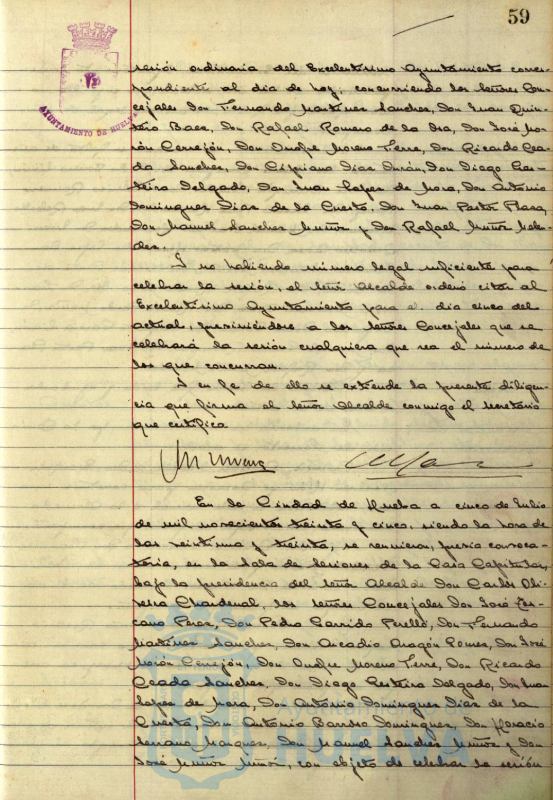 59
AYUNTAMIENTO DE HUELVA
sesión ordinaria del Excelentísimo Ayuntamiento corres-
pondiente al día de hoy, concurriendo los señores Con-
cejales Don Fernando Martínez Sánchez, Don Juan Quin-
tero Baez, Don Rafael Romero de la Osa, Don José Mo-
rón Cerrejón, Don Onofre Moreno Tierre, Don Ricardo Cea-
da Sánchez, Don Cipriano Díaz Durán, Don Diego Les-
teira Delgado, Don Juan López de Mora, Don Antonio
Domínguez Díaz de la Cuesta, Don Juan Pastor Plaza,
Don Manuel Sánchez Muñoz y Don Rafael Muñoz
Y no habiendo número legal suficiente para
celebrar la sesión, el señor Alcalde ordenó citar al
Excelentísimo Ayuntamiento para el día cinco del
actual, previniéndose a los señores Concejales que se
celebrará la sesión cualquiera que sea el número de
los que concurran.
Y en fe de ello se extiende la presente diligen-
cia que firma el señor Alcalde conmigo el secretario
que certifica
En la Ciudad de Huelva a cinco de Julio
de mil novecientos treinta y cinco, siendo la hora de
las veintiuna y treinta, se reunieron, previa convoca-
toria, en la Sala de Sesiones de la Casa Capitular,
bajo la presidencia del señor Alcalde Don Carlos Oli-
veira Chardenal, los señores Concejales Don José Lez-
cano Pérez, Don Pedro Garrido Perelló, Don Fernando
Martínez Sánchez, Don Arcadio Aragón Gómez, Don José
Morón Cerrejón, Don Onofre Moreno Tierre, Don Ricardo
Ceada Sánchez, Don Diego Lesteira Delgado, Don Juan
López de Mora, Don Antonio Domínguez Díaz de la
Cuesta, Don Antonio Barroso Domínguez, Don Horacio
Serrano Márquez, Don Manuel Sánchez Muñoz y Don
José Muñoz Muñoz, con objeto de celebrar la sesión
Ayuntamiento
HUELVA